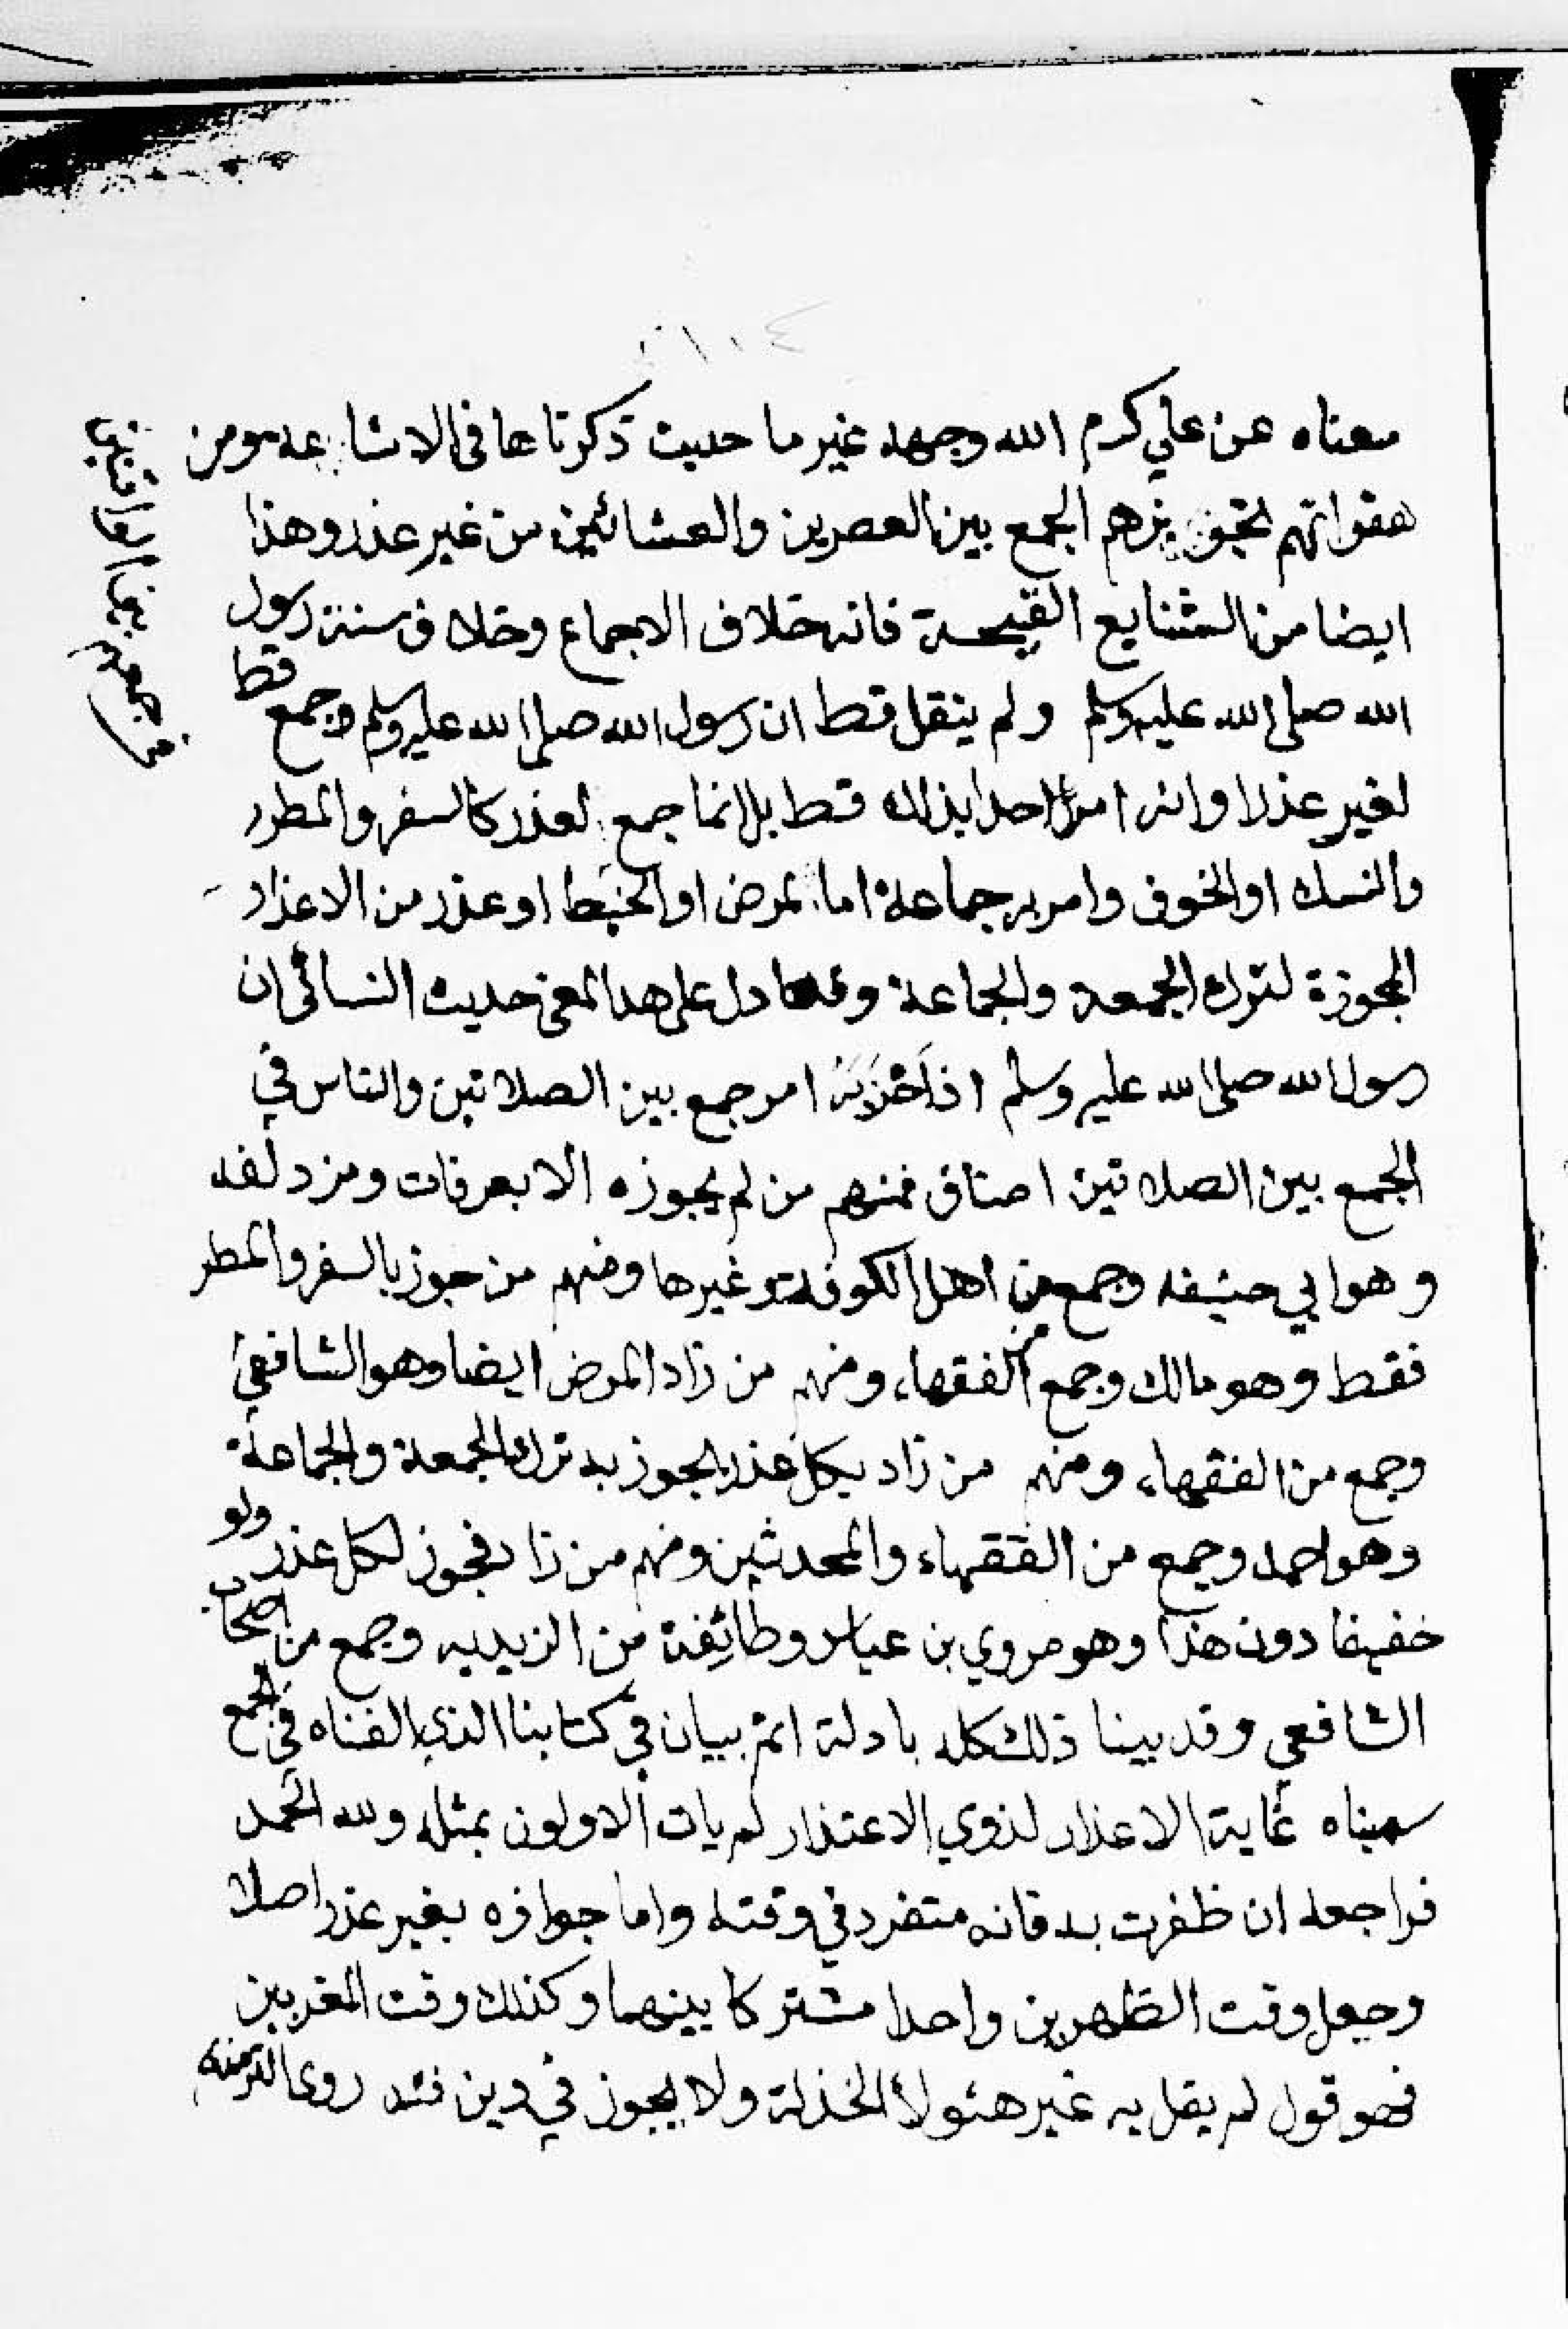 ١٠٤
معناه عن علي كرم الله وجهه غير ما حديث ذكرناها فى الاشاعه ومن
هفواتهم تجويزهم الجمع بين العصرين والعشائين من غير عذر وهذا
ايضا من الشنايع القبيحة فانه خلاف الاجماع وخلاف سنة رسول
الله صلى الله عليه وسلم ولم ينقل قط ان رسول الله صلى الله عليه وسلم جمع قط
لغير عذر او انه امر احدا بذلك قط بل انما جمع لعذر كالسفر والمطر
والنسك او الخوف وامر به جماعة اما لمرض او لخبط او عذر من الاعذار
المجوزة لترك الجمعة والجماعة ومما دل على هذا المعنى حديث النسائى ان
رسول الله صلى الله عليه وسلم اذا حَزَبَهُ امر جمع بين الصلاتين والناس في
الجمع بين الصلاتين اصناف فمنهم من لم يجوزه الا بعرفات ومزدلفه
وهو ابي حنيفه وجمع من اهل الكوفة وغيرها ومنهم من جوز بالسفر والمطر
فقط وهو مالك وجمع من الفقهاء ومنهم من زاد المرض ايضا وهو الشافعي
وجمع من الفقهاء ومنهم من زاد بكل عذر يجوز به ترك الجمعة والجماعة
وهو احمد وجمع من الفقهاء والمحدثين ومنهم من زاد فجوز لكل عذر ولو
خفيفا دون هذا وهو مروي بن عباس وطائفة من الزيديه وجمع من اصحاب
الشافعي وقد بينا ذلك كله بادلة اتم بيان في كتابنا الذي الفناه في الجمع
سميناه غاية الاعذار لذوي الاعتذار لم يات الاولون بمثله ولله الحمد
فراجعه ان ظفرت به فانه متفرد في وقته واما جوازه بغير عذر اصلا
وجعل وقت الظهرين واحدا مشتركا بينهما وكذلك وقت المغربين
فهو قول لم يقل به غير هئولا الخذلة ولا يجوز في دين فئد روى الترمذي
جمعهم بين